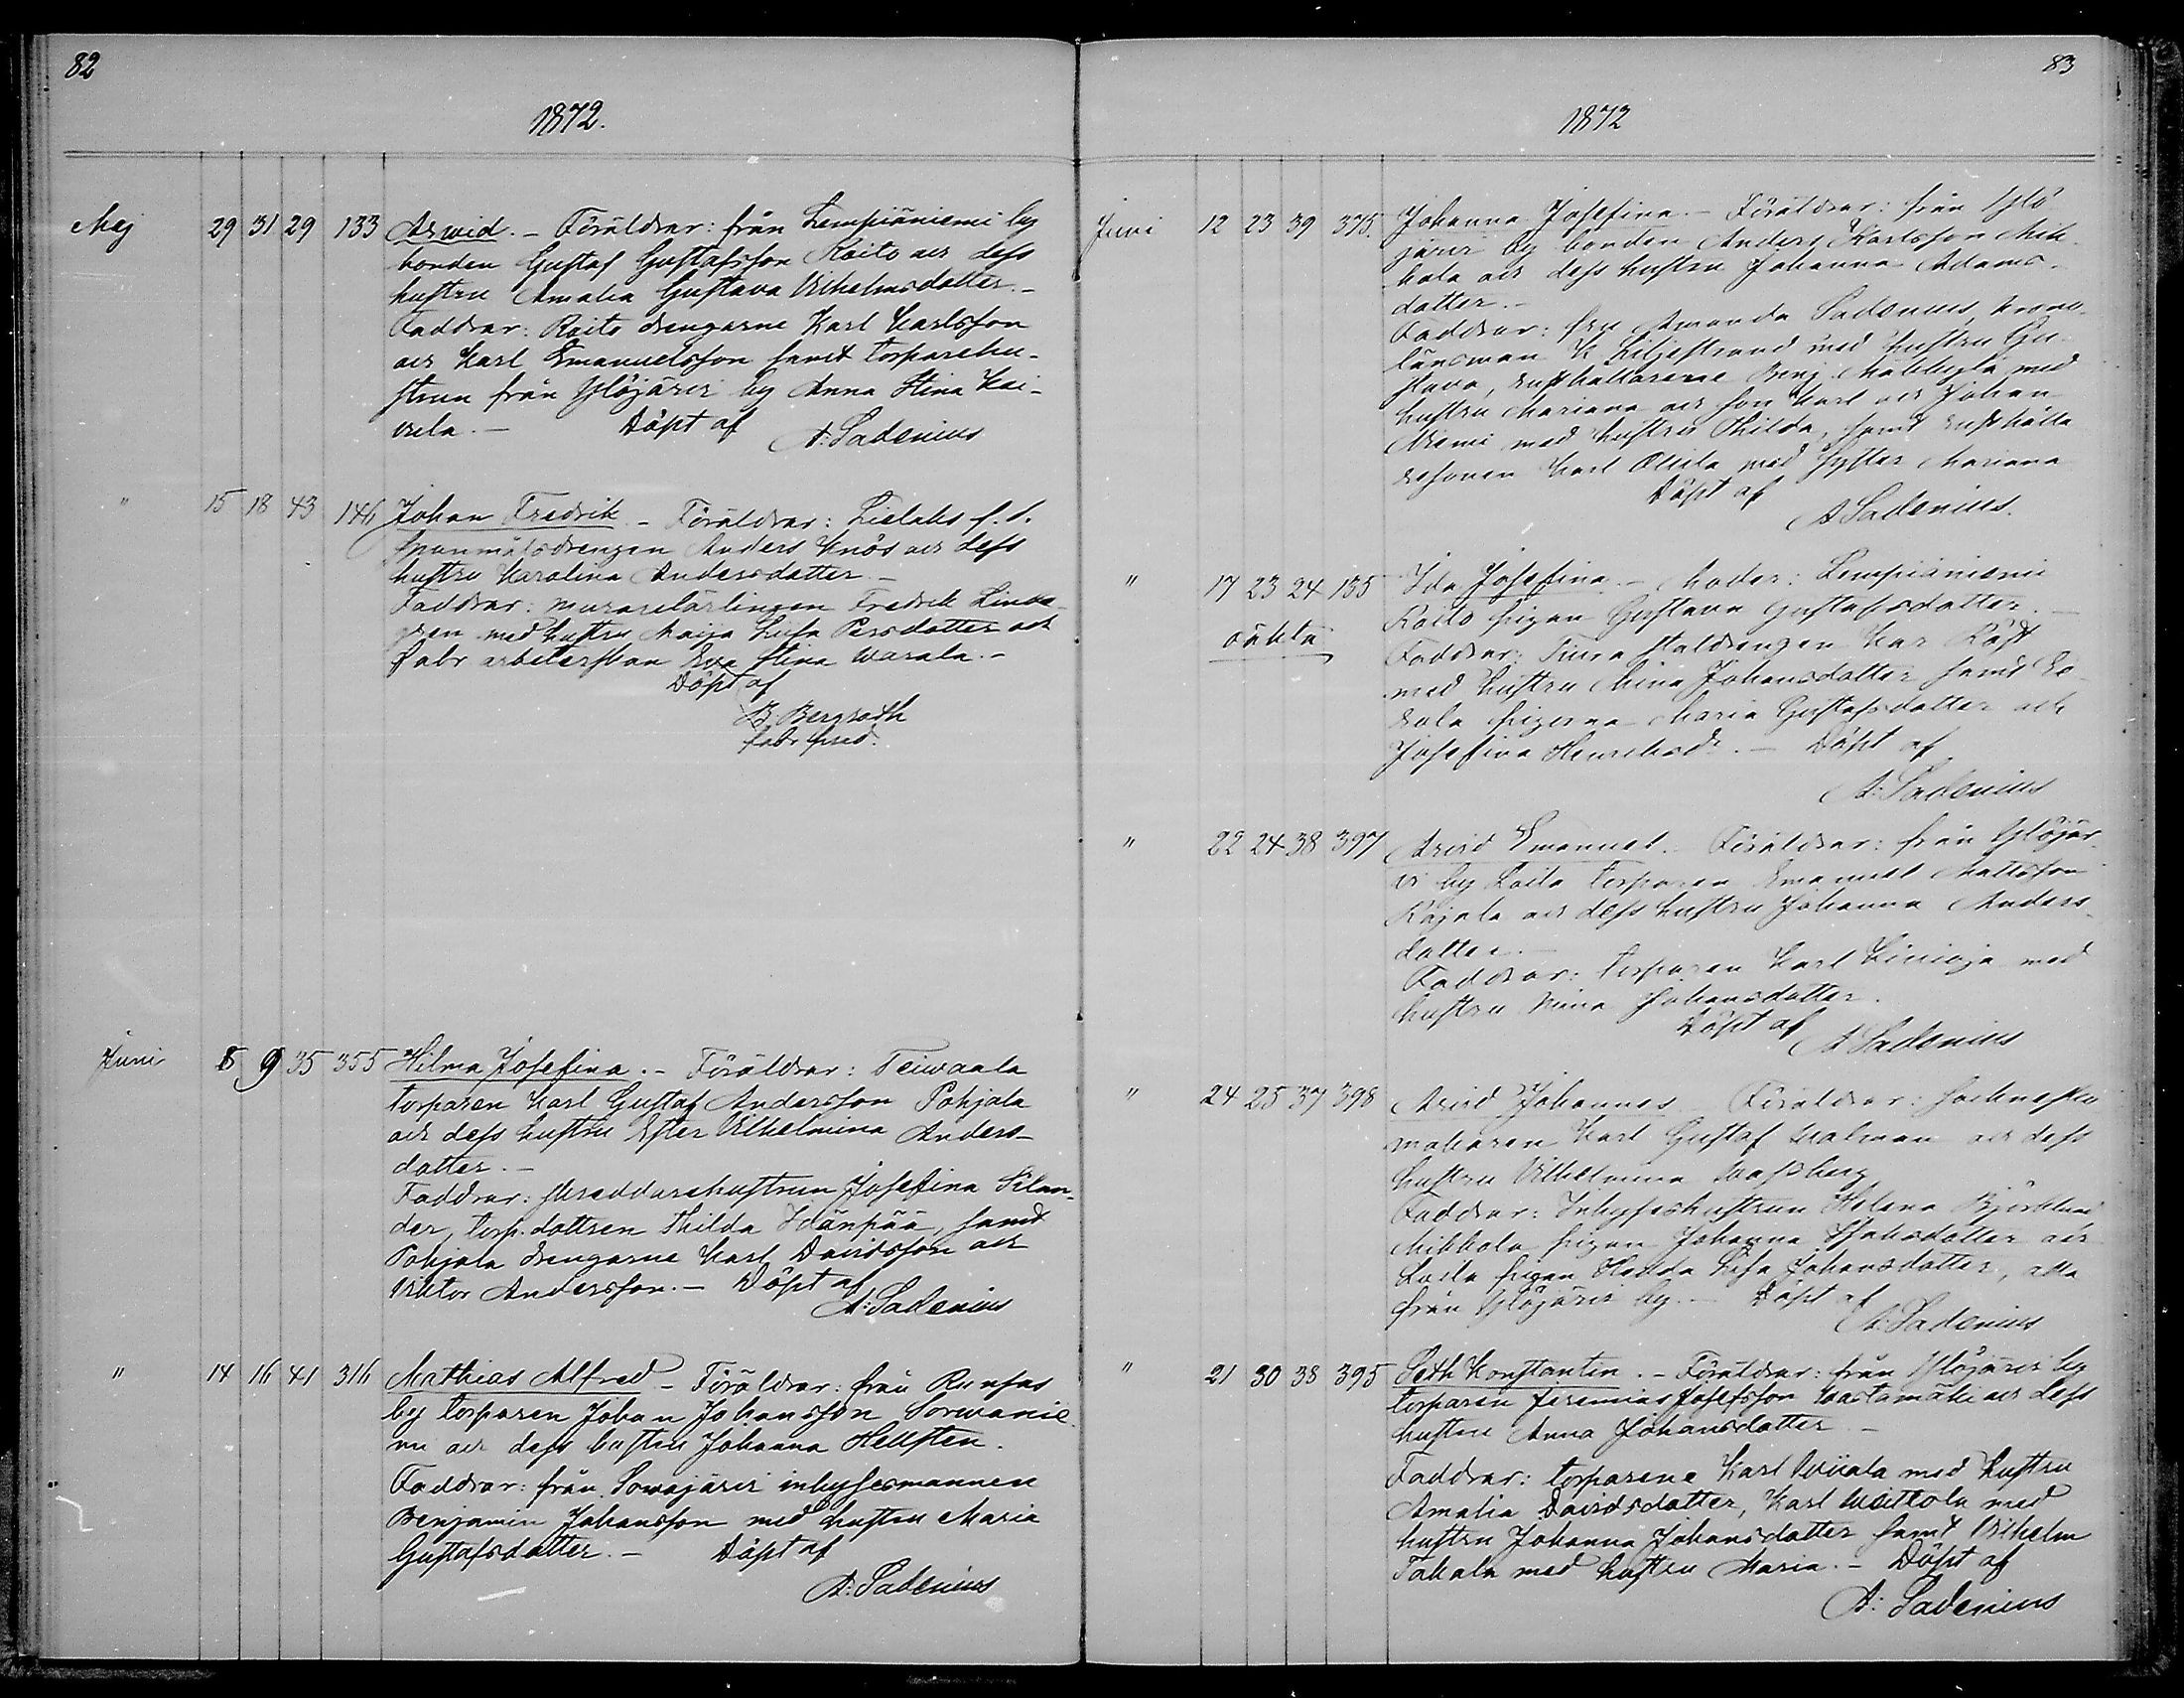 82
1872.
Maj 29 31 29 133 Arwid. - Föräldrar: från Lempiäniemi by
bonden Gustaf Gustafsson Roito och dess
hustru Amalia Gustava Vilhelmsdotter. -
Faddrar: Roito drengarne Karl Karlsson
och Karl Emanuelsson samt torparehu-
strun från Ylöjärvi by Anna Stina Kai-
vela. - Döpt af A: Sadenius
" 15 18 43 146 Johan Fredrik - Föräldrar: Lielaks f. d.
spanmålsdrengen Anders Knös och dess
hustru Karolina Andersdotter -
Faddrar: murarelärlingen Fredrik Lind-
gren med hustru Maija Lisa Persdotter och
fabr arbeterskan Eva Stina Warala. -
Döpt af
B. Bergroth
fabr pred.
Juni 5 9 35 355 Hilma Josefina. - Föräldrar: Teiwaala
torparen Karl Gustaf Andersson Pohjola
och dess hustru Ester Vilhelmina Anders-
dotter. -
Faddrar: skreddarehustrun Josefina Silan-
der, torp. dottren Thilda Ylänpää, samt
Pohjola drengarne Karl Davidsson och
Viktor Andersson. - Döpt af
A: Sadenius
" 14 16 41 316 Mathias Alfred - Föräldrar: från Runsas
by torparen Johan Johansson Sorwanie
mi och dess hustru Johanna Hellsten.
Faddrar: från Sorvajärvi inhysesmannen
Benjamin Johansson med hustru Maria
Gustafsdotter. - Döpt af
A: Sadenius
83
1872
Juni 12 23 39 375. Johanna Josefina - Föräldrar: från Ylö
järvi by bonden Anders Karlsson Mik
kola och dess hustru Johanna Adams-
dotter. -
Faddrar: fru Amanda Sadenius, krono
länsman K Liljestrand med hustru Gu
stava, rusthållarene Benj. med
hustru Mariana och son Karl och Johan
Niemi med hustru Thilda, samt rusthålla
resonen Karl Ollila med syster Mariana
Döpt af
A Sadenius.
" 17 23 24 135 Ida Josefina - Moder: Lempiäniemi
oäkta Roito pigan Gustava Gustafsdotter. -
Faddrar: staldrengen Röst
med hustru Mina Johansdotter samt
pigorna Maria Gustafsdotter och
Josefina Henriksdr. - Döpt af
A: Sadenius
" 22 24 38 397 Arvid Emanuel. Föräldrar: från Ylöjär
vi by torparen Emanuel Mattsson
Rajala och dess hustru Johanna Anders
dotter. -
Faddrar: torparen Karl med
hustru Mina Johansdotter.
Döpt af
A Sadenius
" 24 25 37 398 Arvid Johannes Föräldrar:
makaren Karl Gustaf Walman och dess
hustru Vilhelmina
Faddrar: Inhyseshustrun Helena Björklund
Mikkola pigan Johanna Jakobsdotter och
pigan Hedda Lisa Johansdotter, alla
från Ylöjärvi by. - Döpt af
A. Sadenius
" 21 30 38 395 Seth Konstantin. - Föräldrar: från Ylöjärvi by
torparen Jeremias Josefsson Wastamäki och dess
hustru Anna Johansdotter -
Faddrar: torparene Karl med hustru
Amalia Davidsdotter, Karl Wäittola med
hustru Johanna Johansdotter samt Vilhelm
Takala med hustru Maria. - Döpt af
A: Sadenius